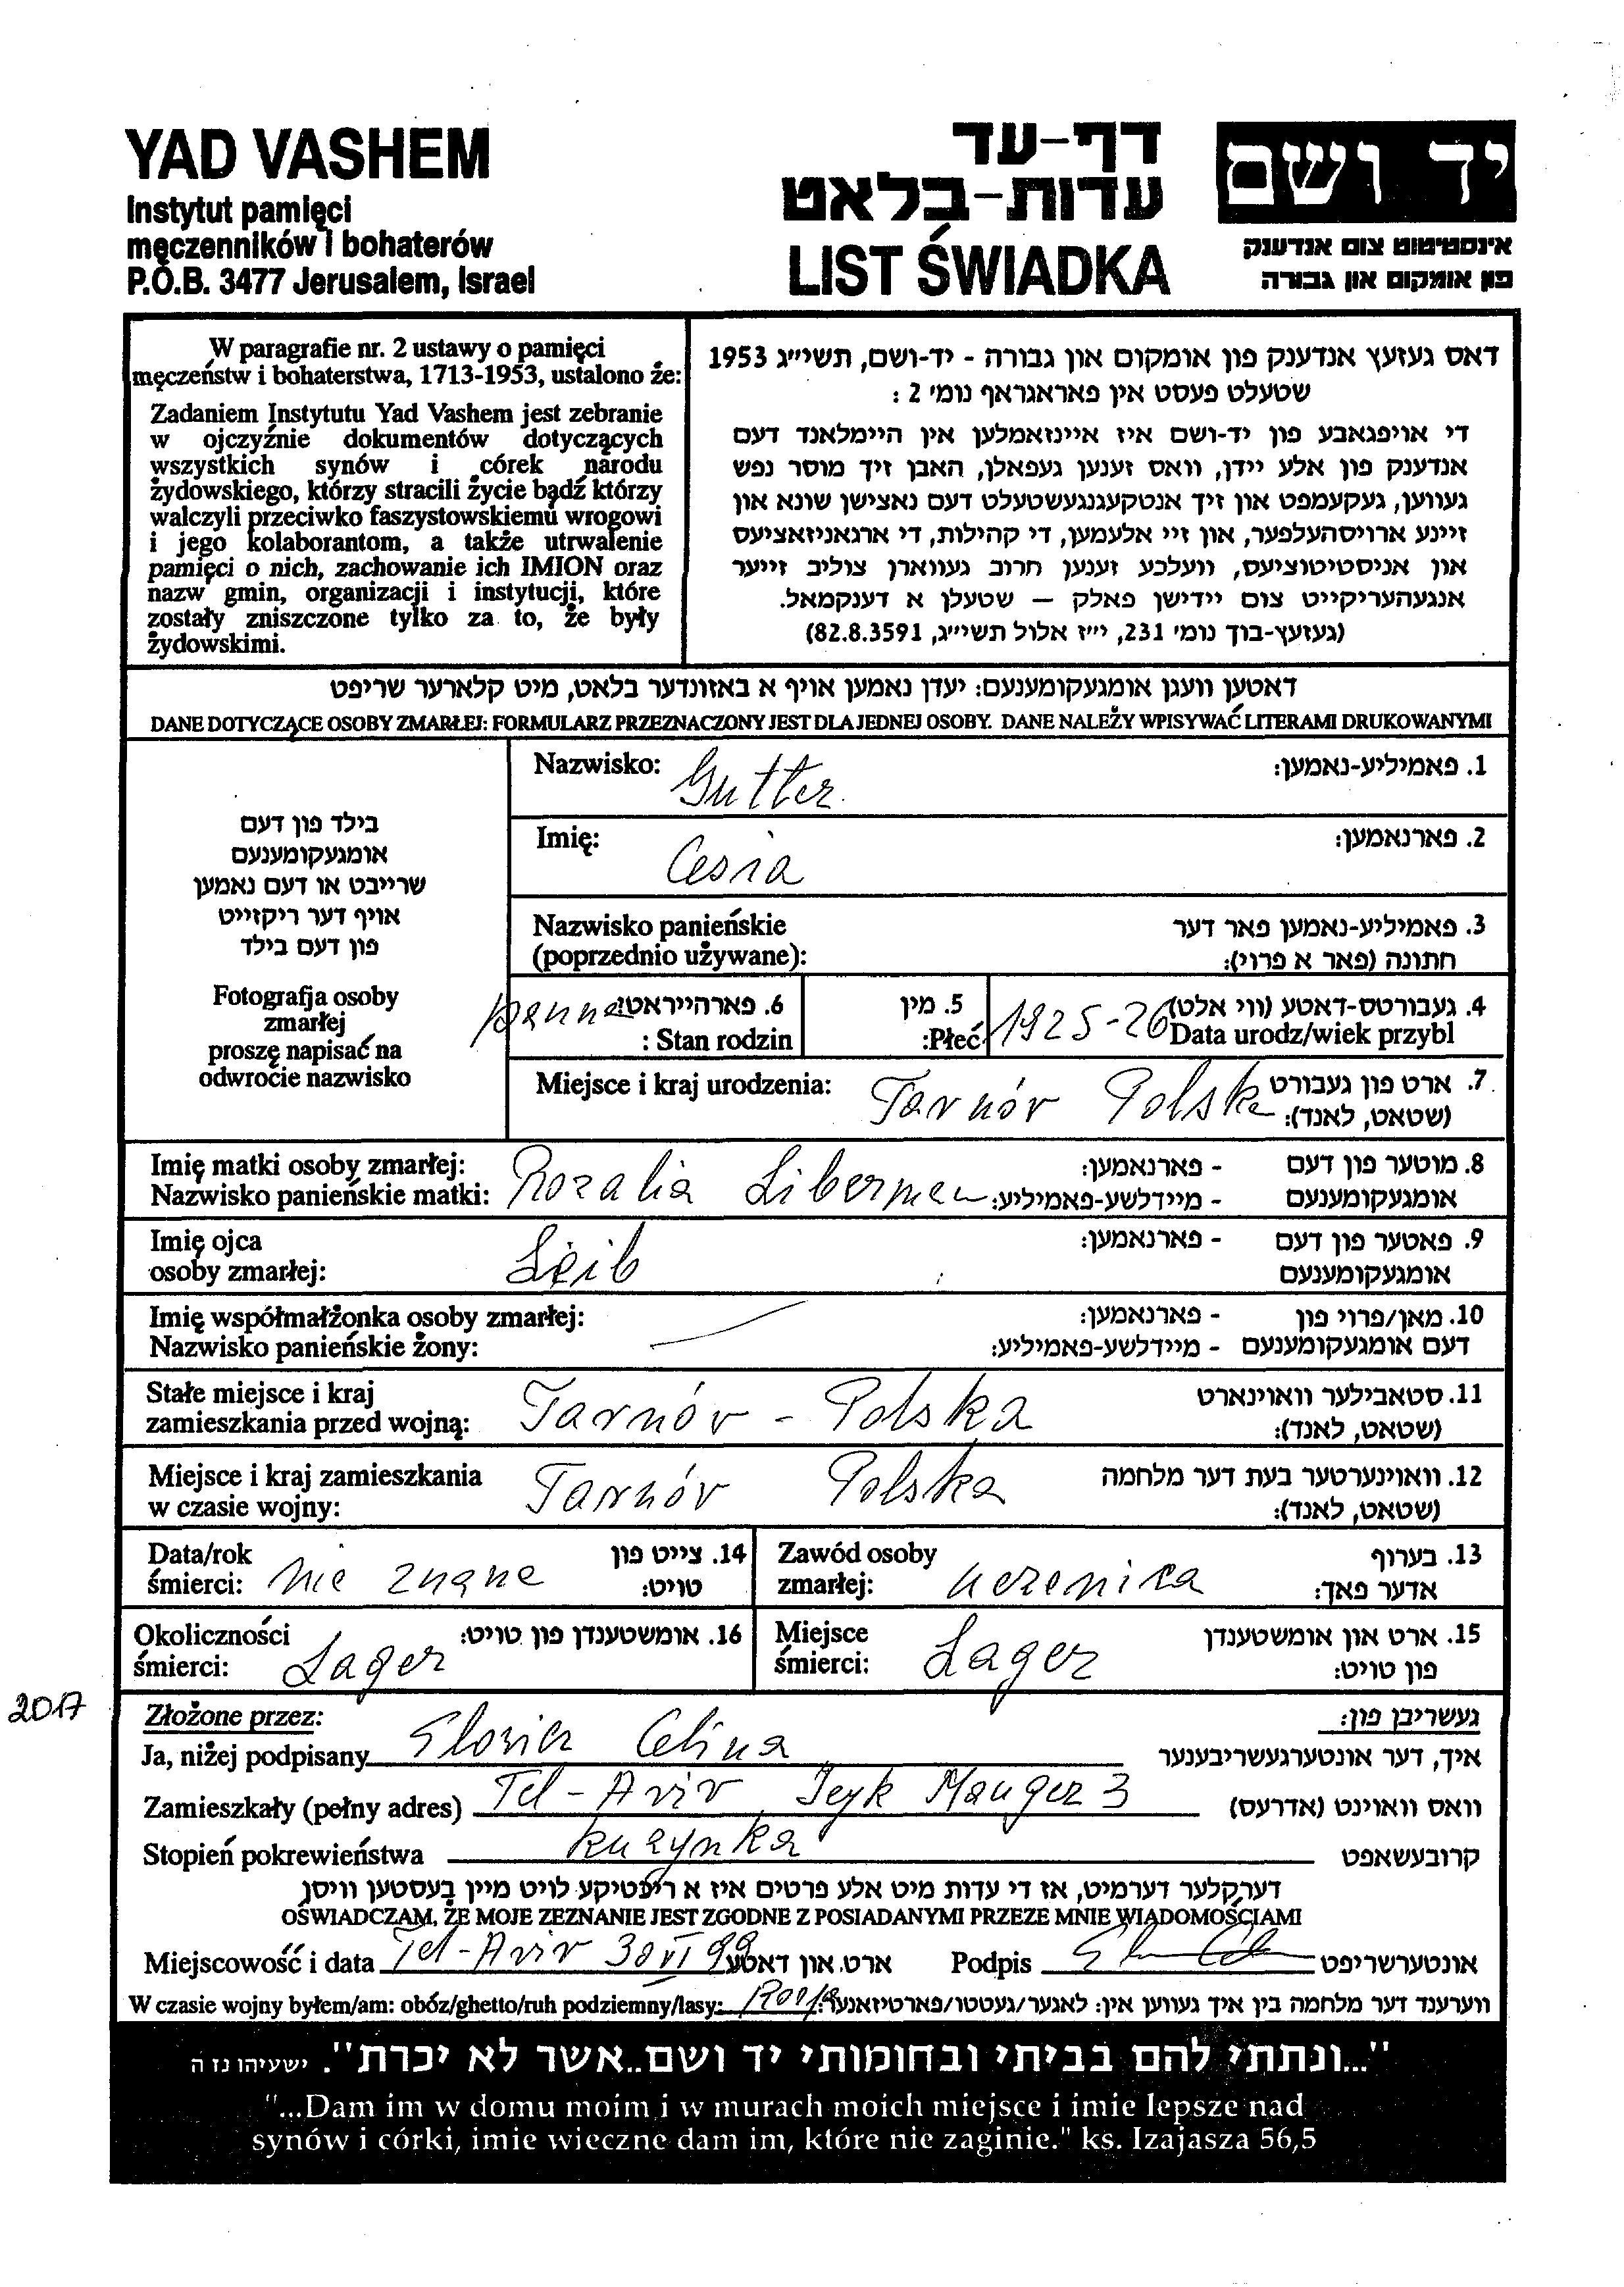 YAD VASHEM
Instytut pamięci
męczenników i bohaterów
P.O.B. 3477 Jerusalem, Israel
דף-עד
עדות-בלאט
LIST ŚWIADKA
יד ושם
אינסטיטוט צום אנדענק
פון אומקום און גבורה
W paragrafie nr. 2 ustawy o pamięci
męczeństw i bohaterstwa, 1713-1953, ustalono że:
Zadaniem Instytutu Yad Vashem jest zebranie
w ojczyźnie dokumentów dotyczących
wszystkich synów i córek narodu
żydowskiego, którzy stracili życie bądź którzy
walczyli przeciwko faszystowskiemu wrogowi
i jego kolaborantom, a także utrwalenie
pamięci o nich, zachowanie ich IMION oraz
nazw gmin, organizacji i instytucji, które
zostały zniszczone tylko za to, że były
żydowskimi.
דאס געזעץ אנדענק פון אומקום און גבורה - יד-ושם, תשי״ג 1953
שטעלט פעסט אין פאראגראף נומי 2 :
די אויפגאבע פון יד-ושם איז איינזאמלען אין היימלאנד דעם
אנדענק פון אלע יידן, וואס זענען געפאלן, האבן זיך מוסר נפש
געווען, געקעמפט און זיך אנטקעגנגעשטעלט דעם נאצישן שונא און
זיינע ארויסהעלפער, און זיי אלעמען, די קהילות, די ארגאניזאציעס
און אניסטיטוציעס, וועלכע זענען חרוב געווארן צוליב זייער
אנגעהעריקייט צום יידישן פאלק – שטעלן א דענקמאל.
(געזעץ-בוך נומי 231, י״ז אלול תשי״ג, 82.8.3591)
דאטען וועגן אומגעקומענעם: יעדן נאמען אויף א באזונדער בלאט, מיט קלארער שריפט
DANE DOTYCZĄCE OSOBY ZMARŁEJ: FORMULARZ PRZEZNACZONY JEST DLA JEDNEJ OSOBY. DANE NALEŻY WPISYWAĆ LITERAMI DRUKOWANYMI
בילד פון דעם
אומגעקומענעם
שרייבט או דעם נאמען
אויף דער ריקזייט
פון דעם בילד
Fotografja osoby
zmarłej
proszę napisać na
odwrocie nazwisko
Nazwisko: Gutter 1. פאמיליע-נאמען:
Imię: Cesia 2. פארנאמען:
Nazwisko panieńskie 3. פאמיליע-נאמען פאר דער
(poprzednio używane): חתונה (פאר א פרוי):
panna 6. פארהייראט: 5. מין 1925-26 4. געבורטס-דאטע (ווי אלט)
Stan rodzin : Płeć: Data urodz/wiek przybl
Miejsce i kraj urodzenia: Tarnów Polska 7. ארט פון געבורט
(שטאט, לאנד):
Imię matki osoby zmarłej: - פארנאמען: 8. מוטער פון דעם
Nazwisko panieńskie matki: Rozalia Liberman - מיידלשע-פאמיליע: אומגעקומענעם
Imię ojca - פארנאמען: 9. פאטער פון דעם
osoby zmarłej: Leib אומגעקומענעם
Imię współmałżonka osoby zmarłej: - פארנאמען: 10. מאן/פרוי פון
Nazwisko panieńskie żony: - מיידלשע-פאמיליע: דעם אומגעקומענעם
Stałe miejsce i kraj 11. סטאבילער וואוינארט
zamieszkania przed wojną: Tarnów - Polska (שטאט, לאנד):
Miejsce i kraj zamieszkania 12. וואוינערטער בעת דער מלחמה
w czasie wojny: Tarnów Polska (שטאט, לאנד):
Data/rok 14. צייט פון Zawód osoby 13. בערוף
śmierci: nie znane טויט: zmarłej: uczenica אדער פאך:
Okoliczności 16. אומשטענדן פון טויט: Miejsce 15. ארט און אומשטענדן
śmierci: Lager śmierci: Lager פון טויט:
2017
Złożone przez: געשריבן פון:
Ja, niżej podpisany Celina איך, דער אונטערגעשריבענער
Zamieszkały (pełny adres) Tel-Aviv, Mauger 3 וואס וואוינט (אדרעס)
Stopień pokrewieństwa kuzynka קרובעשאפט
דערקלער דערמיט, אז די עדות מיט אלע פרטים איז א ריכטיקע לויט מיין בעסטען וויסן
OŚWIADCZAM, ŻE MOJE ZEZNANIE JEST ZGODNE Z POSIADANYMI PRZEZE MNIE WIADOMOŚCIAMI
Miejscowość i data Tel-Aviv 30 VI 99 ארט און דאטע Podpis אונטערשריפט
W czasie wojny byłem/am: obóz/ghetto/ruh podziemny/lasy: Rosja ווערענד דער מלחמה בין איך געווען אין: לאגער/געטטו/פארטיזאנער:
"...ונתתי להם בביתי ובחומותי יד ושם..אשר לא יכרת". ישעיהו נז ה
"...Dam im w domu moim i w murach moich miejsce i imie lepsze nad
synów i córki, imie wieczne dam im, które nie zaginie." ks. Izajasza 56,5